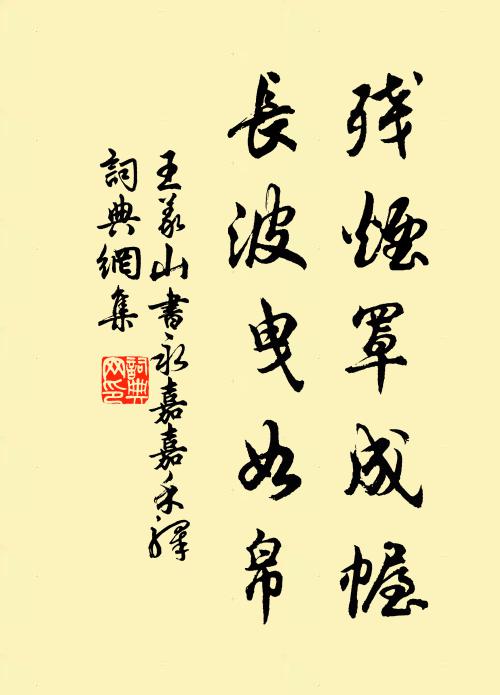 残煙罩成幄
長波曳如帛
王義山書永嘉嘉禾驛
詞典網集
詞典网印